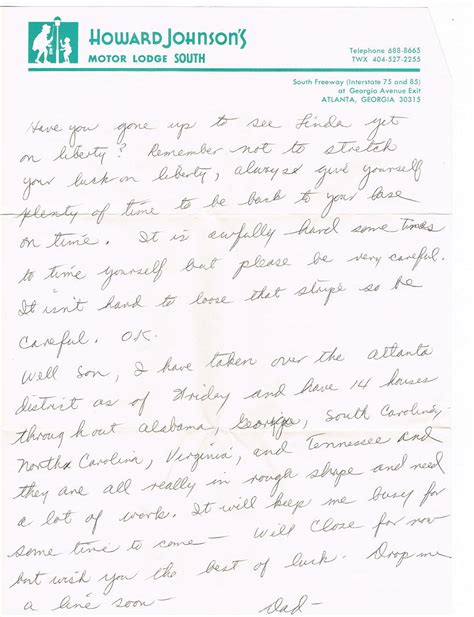 HOWARD JOHNSON'S
MOTOR LODGE SOUTH
Telephone 688-8665
TWX 404-527-2255
South Freeway (Interstate 75 and 85)
at Georgia Avenue Exit
ATLANTA, GEORGIA 30315
Have you gone up to see Linda yet
on liberty? Remember not to stretch
your luck on liberty, always give yourself
plenty of time to be back to your base
on time. It is awfully hard some times
to time yourself but please be very careful.
It isn't hard to loose that stripe so be
careful. OK.
Well Son, I have taken over the atlanta
district as of Friday and have 14 houses
throughout alabama, Georgia, South Carolina,
North Carolina, Virginia, and Tennessee and
they are all really in rough shape and need
a lot of work. It will keep me busy for
some time to come — Will Close for now
but wish you the best of luck. Drop me
a line soon —
Dad —